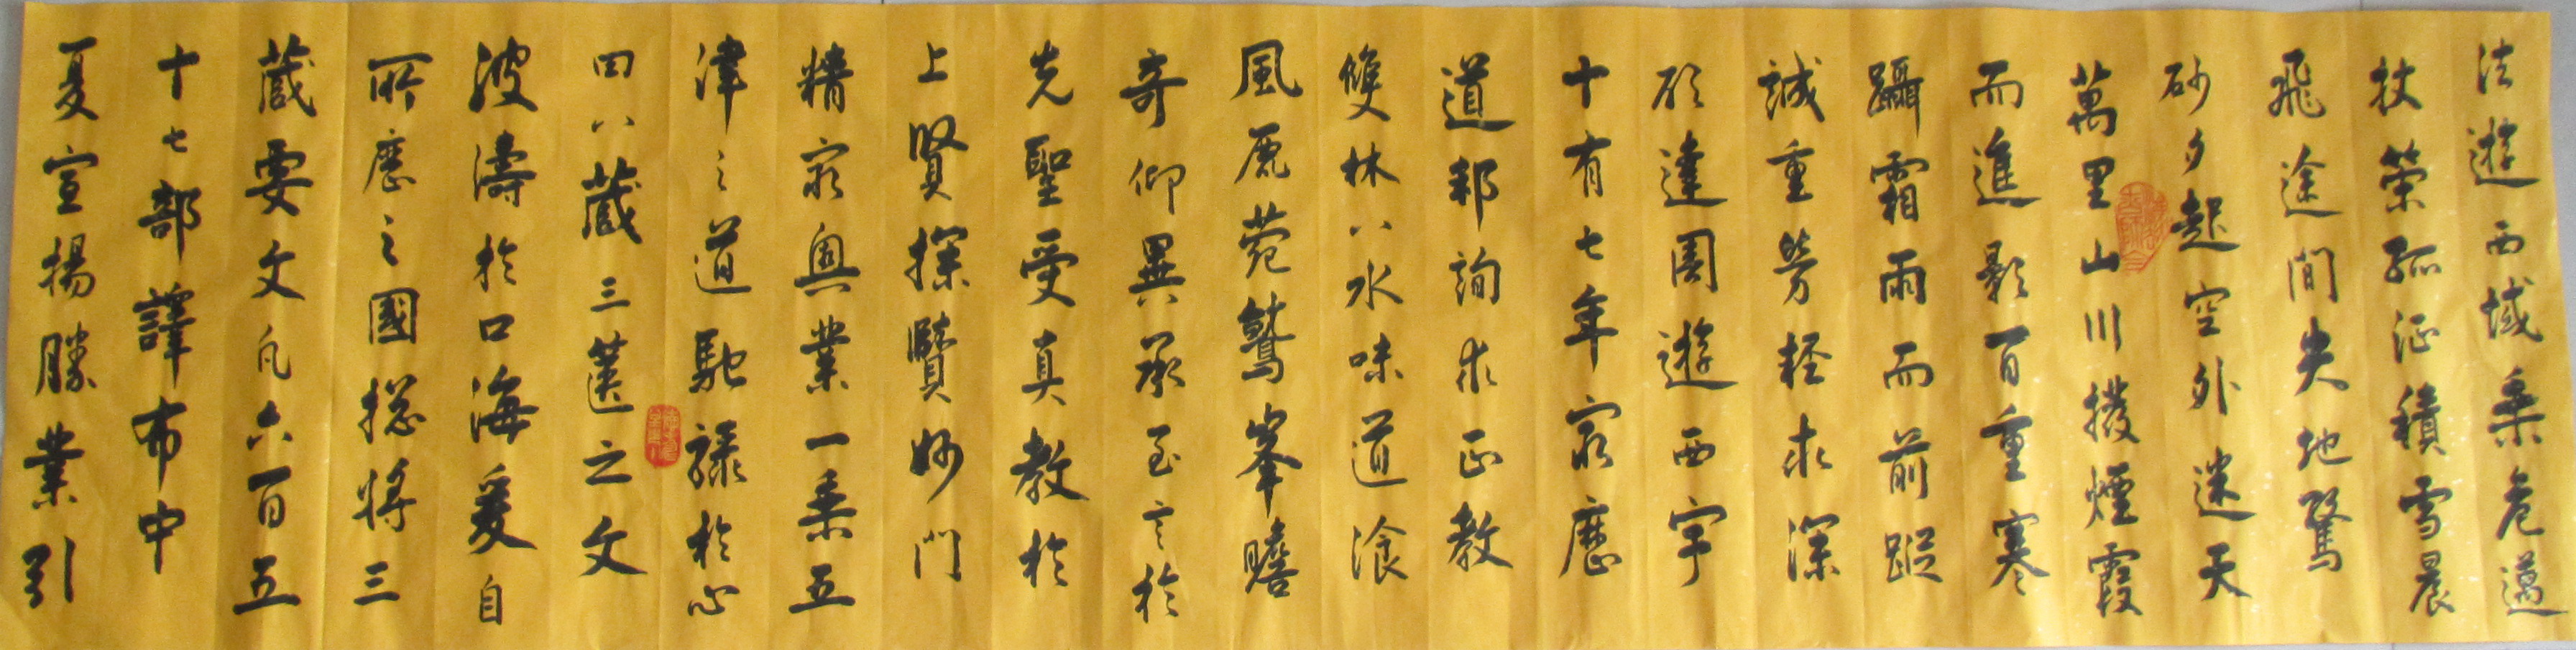 法遊西域乘危邁
杖策孤征積雪晨
飛途間失地驚
砂夕起空外迷天
萬里山川撥煙霞
而進影百重寒
躡霜雨而前蹤
誠重勞輕求深
願達周遊西宇
十有七年窮歷
道邦詢求正教
雙林八水味道湌
風鹿菀鷲峯瞻
奇仰異承至言於
先聖受真教於
上賢探賾妙門
精窮奧業一乘五
津之道馳驟於心
田八藏三篋之文
波濤於口海爰自
所歷之國總將三
藏要文凡六百五
十七部譯布中
夏宣揚勝業引